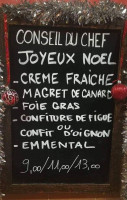 CONSEIL DU CHEF
JOYEUX NOËL
- CREME FRAÎCHE
- MAGRET DE CANARD
- FOIE GRAS
- CONFITURE DE FIGUE
OU
CONFIT D'OIGNON
- EMMENTAL
9,00/11,00/13,00